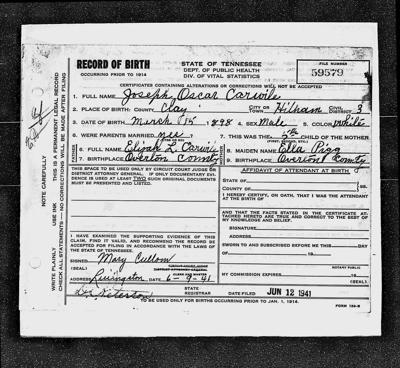 RECORD OF BIRTH
OCCURRING PRIOR TO 1914
STATE OF TENNESSEE
DEPT. OF PUBLIC HEALTH
DIV. OF VITAL STATISTICS
FILE NUMBER
59579
CERTIFICATES CONTAINING ALTERATIONS OR CORRECTIONS WILL NOT BE ACCEPTED
1. FULL NAME Joseph Oscar Carwile
2. PLACE OF BIRTH: COUNTY Clay CITY OR TOWN Hilham CIVIL DISTRICT 3
3. DATE OF BIRTH March 15 1898 4. SEX Male 5. COLOR White
6. WERE PARENTS MARRIED? yes 7. THIS WAS THE 5th CHILD OF THE MOTHER
FATHER
6. FULL NAME Elijah L. Carwile
7. BIRTHPLACE Overton County
MOTHER
8. MAIDEN NAME Ella Pigg
9. BIRTHPLACE Overton County
THIS SPACE TO BE USED ONLY BY CIRCUIT COURT JUDGE OR
DISTRICT ATTORNEY GENERAL. IF ONLY DOCUMENTARY EVI-
DENCE IS USED AT LEAST TWO SUCH ORIGINAL DOCUMENTS
MUST BE PRESENTED AND LISTED.
AFFIDAVIT OF ATTENDANT AT BIRTH
STATE OF
COUNTY OF SS.
I HEREBY CERTIFY, ON OATH, THAT I WAS THE ATTENDANT
AT THE BIRTH OF
AND THAT THE FACTS STATED IN THE CERTIFICATE AT-
TACHED HERETO ARE TRUE AND CORRECT TO THE BEST OF
MY KNOWLEDGE AND BELIEF.
SIGNATURE
ADDRESS
I HAVE EXAMINED THE SUPPORTING EVIDENCE OF THIS
CLAIM, FIND IT VALID, AND RECOMMEND THE RECORD BE
ACCEPTED FOR FILING IN ACCORDANCE WITH THE LAWS OF
THE STATE OF TENNESSEE.
SIGNED Mary Cullom
(SEAL)
Livingston DATE 6-9-41
SWORN TO AND SUBSCRIBED BEFORE ME THIS DAY
NOTARY PUBLIC
MY COMMISSION EXPIRES
(SEAL)
STATE REGISTRAR DATE FILED JUN 12 1941
TO BE USED ONLY FOR BIRTHS OCCURRING PRIOR TO JAN. 1, 1914.
WRITE PLAINLY USE INK THIS IS A PERMANENT LEGAL RECORD
NOTE CAREFULLY
CHECK ALL STATEMENTS—NO CORRECTIONS WILL BE MADE AFTER FILING